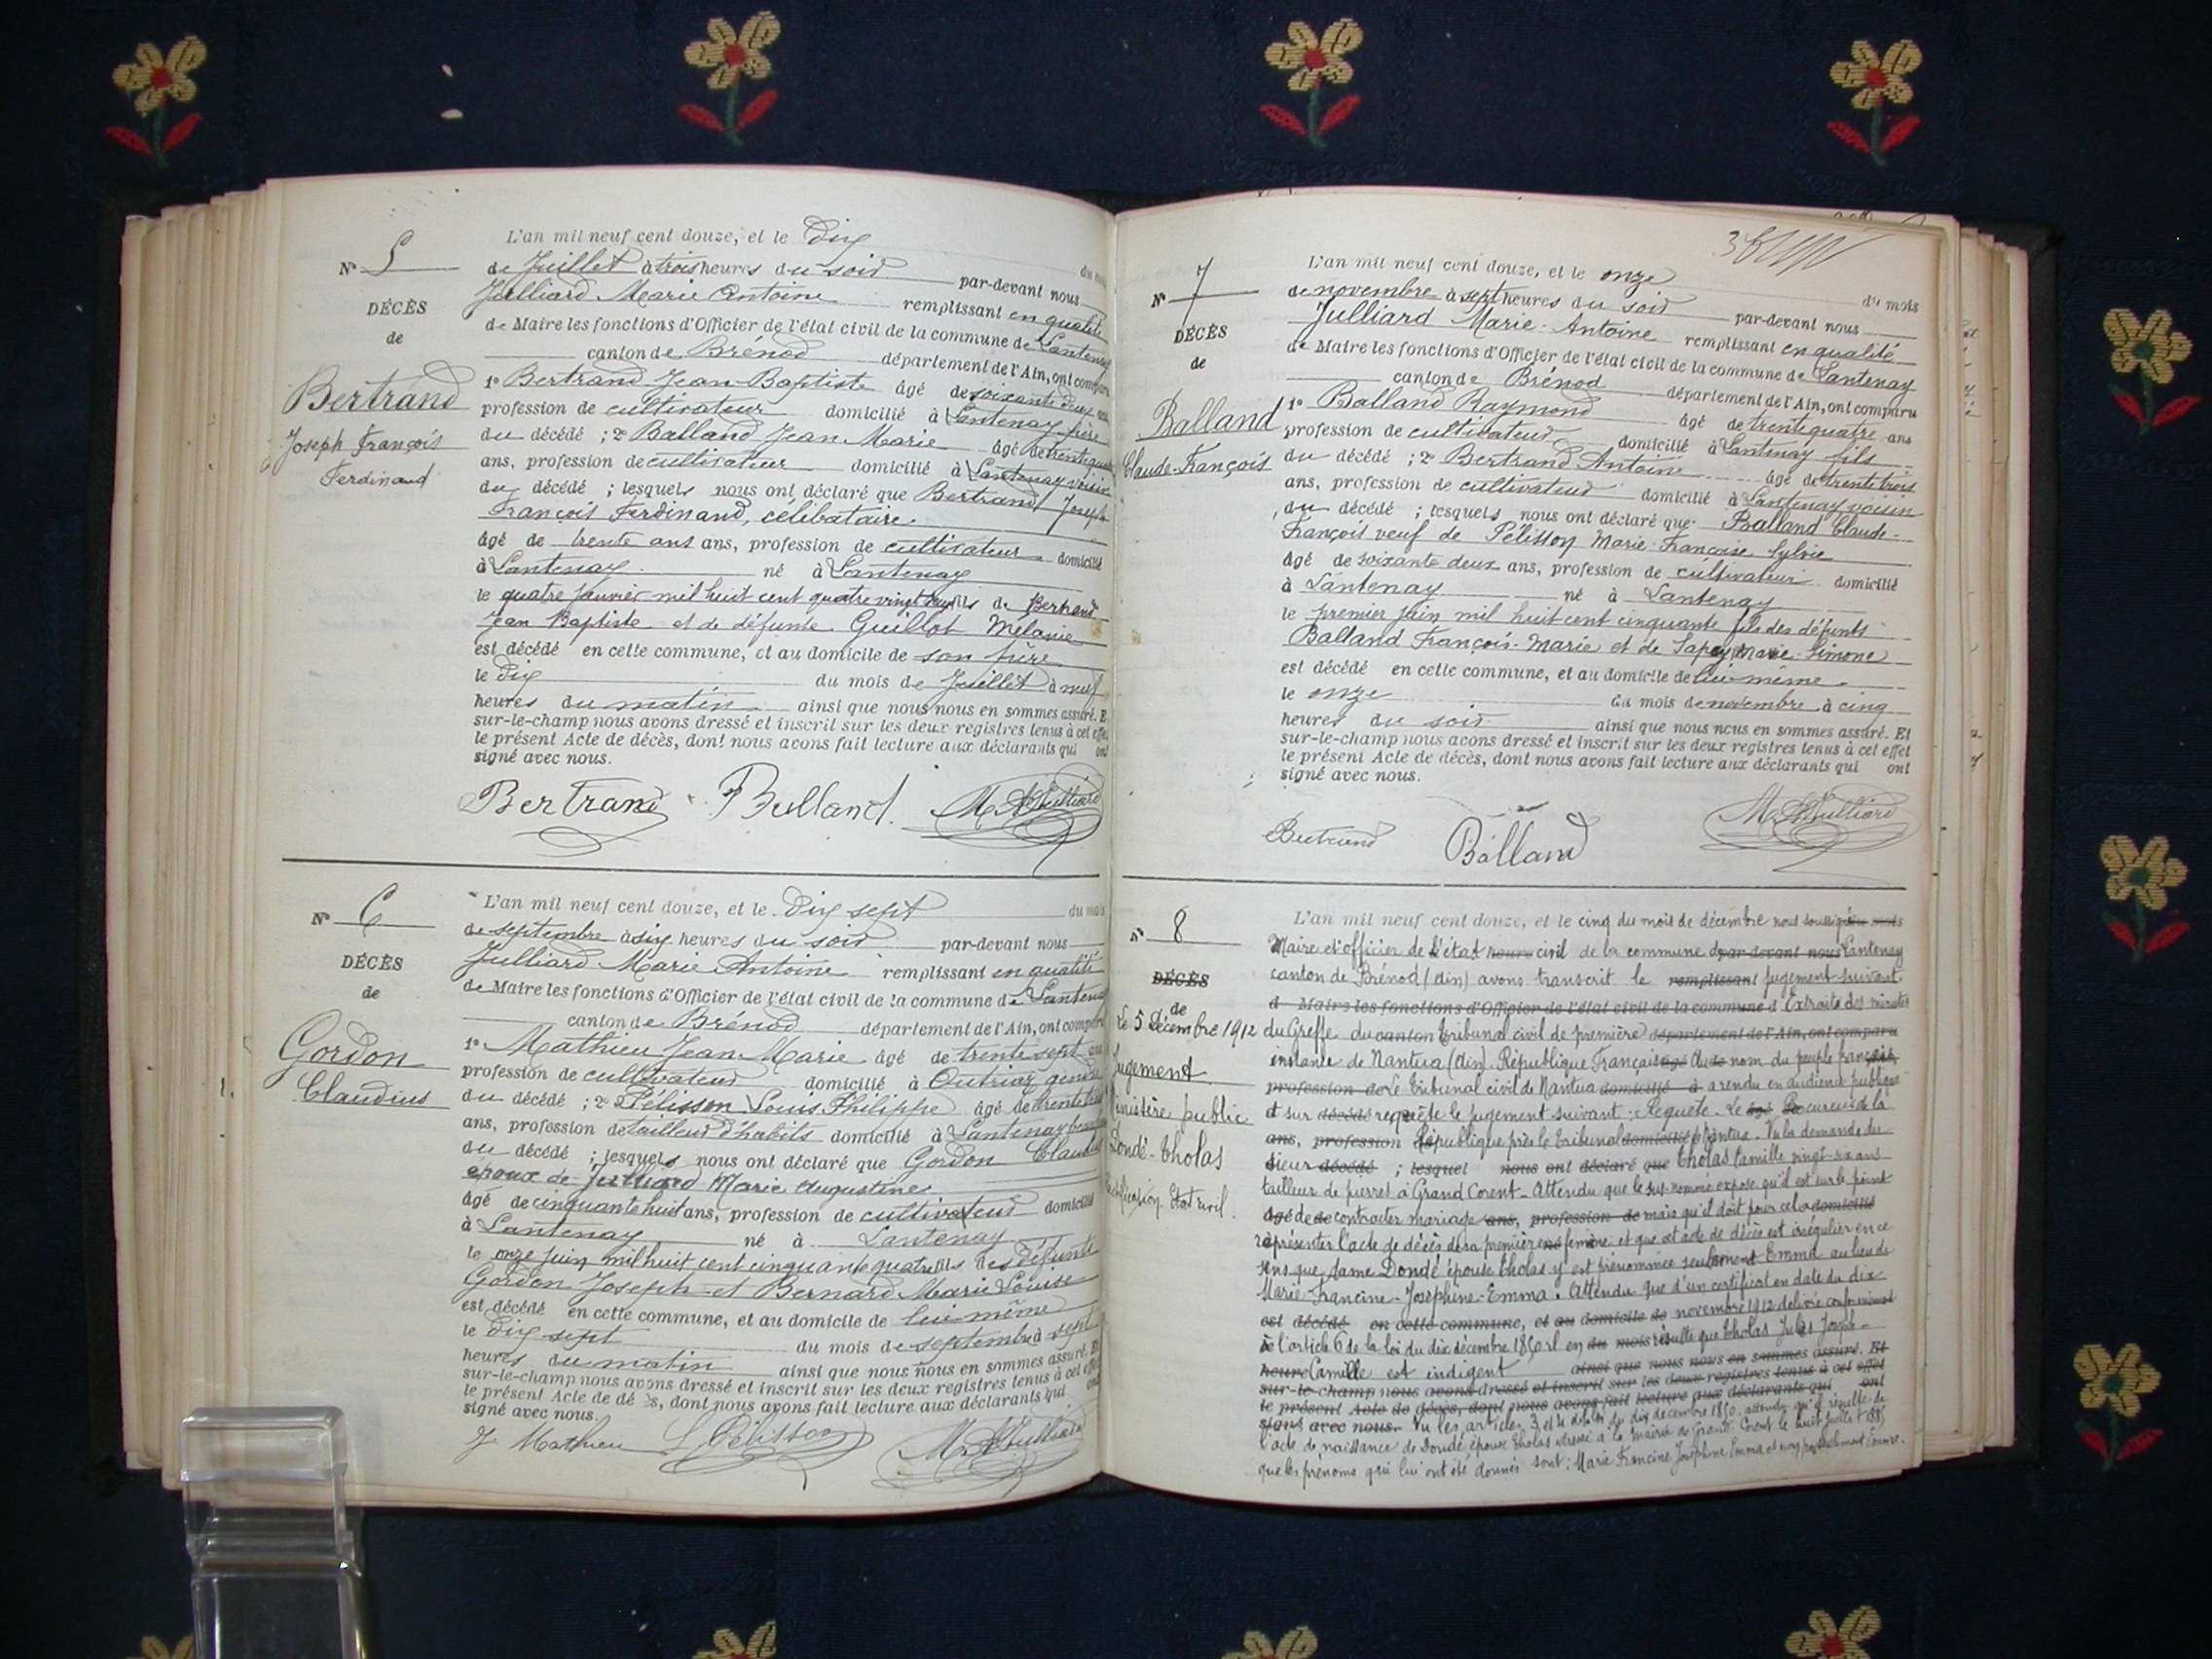 N° 5
DÉCÈS
de
Bertrand
Joseph François
Ferdinand
L'an mil neuf cent douze, et le Dix du mois
de Juillet à trois heures du soir par-devant nous
Julliard Marie Antoine remplissant en qualité
de Maire les fonctions d'Officier de l'état civil de la commune de Lantenay
canton de Brénod département de l'Ain, ont comparu
1° Bertrand Jean-Baptiste âgé de soixante deux ans
profession de cultivateur domicilié à Lantenay père
du décédé ; 2° Balland Jean Marie âgé de trente quatre
ans, profession de cultivateur domicilié à Lantenay voisin
du décédé ; lesquels nous ont déclaré que Bertrand Joseph
François Ferdinand, célibataire
âgé de trente ans ans, profession de cultivateur domicilié
à Lantenay né à Lantenay
le quatre janvier mil huit cent quatre vingt deux fils de Bertrand
Jean Baptiste et de défunte Guillot Mélanie
est décédé en cette commune, et au domicile de son père
le Dix du mois de Juillet à neuf
heures du matin ainsi que nous nous en sommes assuré. Et
sur-le-champ nous avons dressé et inscrit sur les deux registres tenus à cet effet
le présent Acte de décès, dont nous avons fait lecture aux déclarants qui ont
signé avec nous.
Bertrand Balland. M A Julliard
N° 6
DÉCÈS
de
Gordon
Claudius
L'an mil neuf cent douze, et le Dix sept du mois
de septembre à six heures du soir par-devant nous
Julliard Marie Antoine remplissant en qualité
de Maire les fonctions d'Officier de l'état civil de la commune de Lantenay
canton de Brénod département de l'Ain, ont comparu
1° Mathieu Jean Marie âgé de trente sept ans
profession de cultivateur domicilié à Outriaz gendre
du décédé ; 2° Pélisson Louis Philippe âgé de trente
ans, profession de tailleur d'habits domicilié à Lantenay
du décédé ; lesquels nous ont déclaré que Gordon Claudius
époux de Julliard Marie Augustine
âgé de cinquante huit ans, profession de cultivateur domicilié
à Lantenay né à Lantenay
le onze juin mil huit cent cinquante quatre fils des défunts
Gordon Joseph et Bernard Marie Louise
est décédé en cette commune, et au domicile de lui même
le Dix sept du mois de septembre à sept
heures du matin ainsi que nous nous en sommes assuré. Et
sur-le-champ nous avons dressé et inscrit sur les deux registres tenus à cet effet
le présent Acte de décès, dont nous avons fait lecture aux déclarants qui ont
signé avec nous.
J Mathieu L Pélisson M A Julliard
N° 7
DÉCÈS
de
Balland
Claude-François
L'an mil neuf cent douze, et le onze du mois
de novembre à sept heures du soir par-devant nous
Julliard Marie-Antoine remplissant en qualité
de Maire les fonctions d'Officier de l'état civil de la commune de Lantenay
canton de Brénod département de l'Ain, ont comparu
1° Balland Raymond âgé de trente quatre ans
profession de cultivateur domicilié à Lantenay fils
du décédé ; 2° Bertrand Antoine âgé de trente trois
ans, profession de cultivateur domicilié à Lantenay voisin
du décédé ; lesquels nous ont déclaré que Balland Claude-
François veuf de Pélisson Marie-Françoise Sylvie
âgé de soixante deux ans, profession de cultivateur domicilié
à Lantenay né à Lantenay
le premier juin mil huit cent cinquante fils des défunts
Balland François-Marie et de Marie Simone
est décédé en cette commune, et au domicile de lui-même
le onze du mois de novembre à cinq
heures du soir ainsi que nous nous en sommes assuré. Et
sur-le-champ nous avons dressé et inscrit sur les deux registres tenus à cet effet
le présent Acte de décès, dont nous avons fait lecture aux déclarants qui ont
signé avec nous.
Bertrand Balland M A Julliard
N° 8
DÉCÈS
de
Le 5 Décembre 1912
Jugement
Ministère public
Dondé-Tholas
Rectification Etat civil.
L'an mil neuf cent douze, et le cinq du mois de décembre nous soussigné du mois
Maire et officier de l'état heure civil de la commune de par-devant nous Lantenay
canton de Brénod (Ain) avons transcrit le remplissant jugement suivant.
d Maire les fonctions d'Officier de l'état civil de la commune d Extraits des minutes
du Greffe du canton tribunal civil de première département de l'Ain, ont comparu
instance de Nantua (Ain). République Française âgé Au de nom du peuple français,
profession de Le tribunal civil de Nantua domicilié à a rendu en audience publique
et sur décédé requête le jugement suivant : Requête. Le âgé Procureur de la
ans, profession République près le tribunal domicilié à Nantua. Vu la demande du
sieur décédé ; lesquel nous ont déclaré que Tholas Camille vingt-six ans
tailleur de pierres à Grand Corent _ Attendu que le sus-nommé expose qu'il est sur le point
âgé de de contracter mariage ans, profession de mais qu'il doit pour cela domicilié
représenter l'acte de décès de sa première né femme et que cet acte de décès est irrégulier en ce
sens que dame Dondé épouse Tholas y est prénommée seulement Emma au lieu de
Marie-Francine-Joséphine-Emma. Attendu que d'un certificat en date du dix
est décédé en cette commune, et au domicile de novembre 1912 délivré conformément
à l'article 6 de la loi du dix décembre 1850 il en du mois résulte que Tholas Jules Joseph-
heure Camille est indigent ainsi que nous nous en sommes assuré. Et
sur-le-champ nous avons dressé et inscrit sur les deux registres tenus à cet effet
le présent Acte de décès, dont nous avons fait lecture aux déclarants qui ont
signé avec nous. Vu les articles 3 et 4 de la loi du dix décembre 1850, attendu qu'il résulte de
l'acte de naissance de Dondé épouse Tholas dressé à la Mairie de Grand-Corent le huit juillet 1885
que les prénoms qui lui ont été donnés sont : Marie Francine Joséphine Emma et non pas seulement Emma.